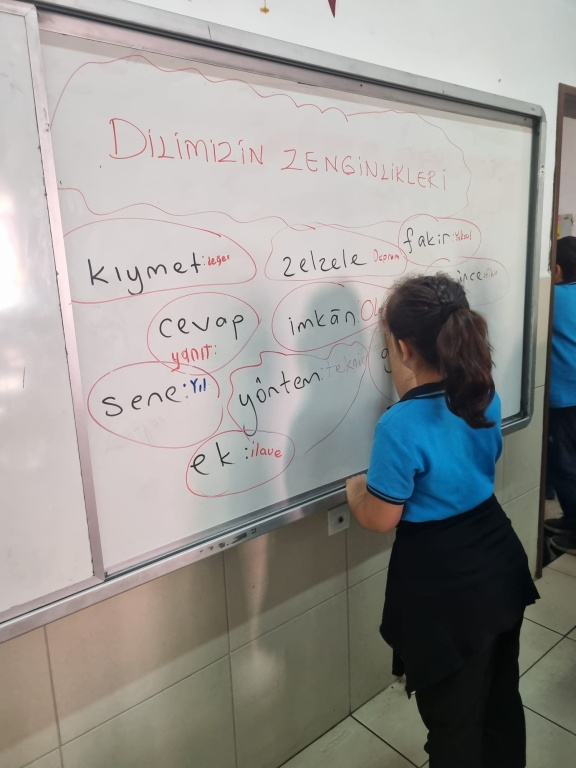 DİLİMİZİN ZENGİNLİKLERİ
kıymet: değer
zelzele Deprem
fakir: Yoksul
cevap
yanıt:
imkān
sene: Yıl
yöntem: teknik
ek: ilave